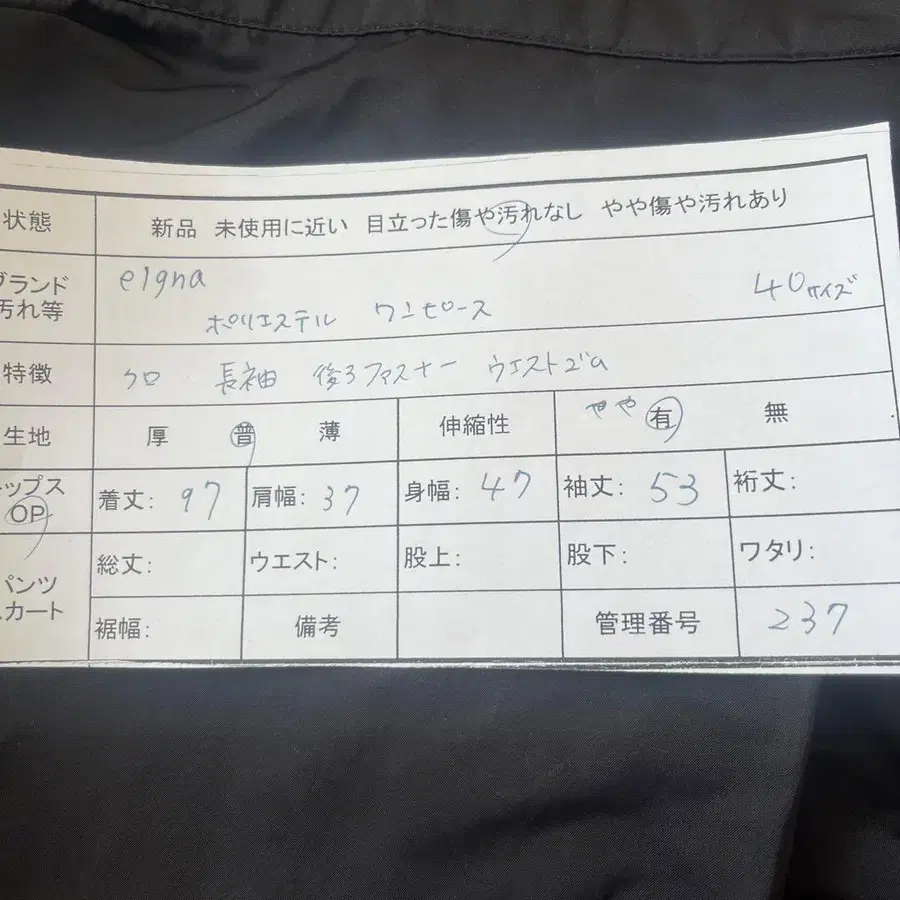 状態 新品 未使用に近い 目立った傷や汚れなし やや傷や汚れあり
ブランド 汚れ等 eigna 40サイズ
ポリエステル ワンピース
特徴 クロ 長袖 後ろファスナー ウエストゴム
生地 厚 普 薄 伸縮性 やや 有 無
ップス OP 着丈: 97 肩幅: 37 身幅: 47 袖丈: 53 裄丈:
パンツ カート 総丈: ウエスト: 股上: 股下: ワタリ:
裾幅: 備考 管理番号 237